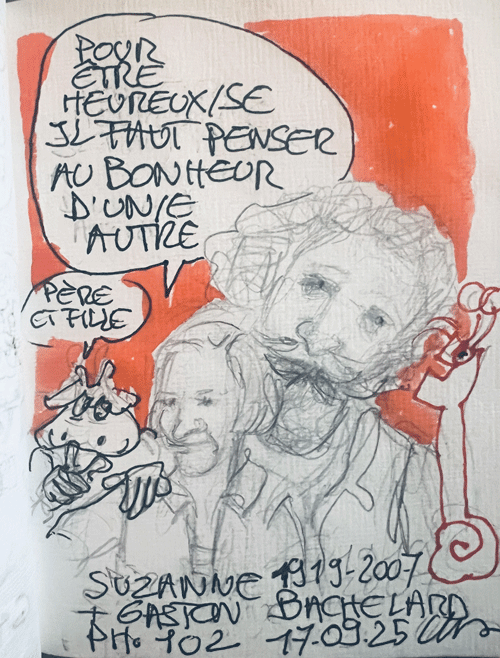 POUR
ÊTRE
HEUREUX/SE
IL FAUT PENSER
AU BONHEUR
D'UN/E
AUTRE
PÈRE
ET FILLE
SUZANNE 1919-2007
+ GASTON BACHELARD
PH. 102 17.09.25